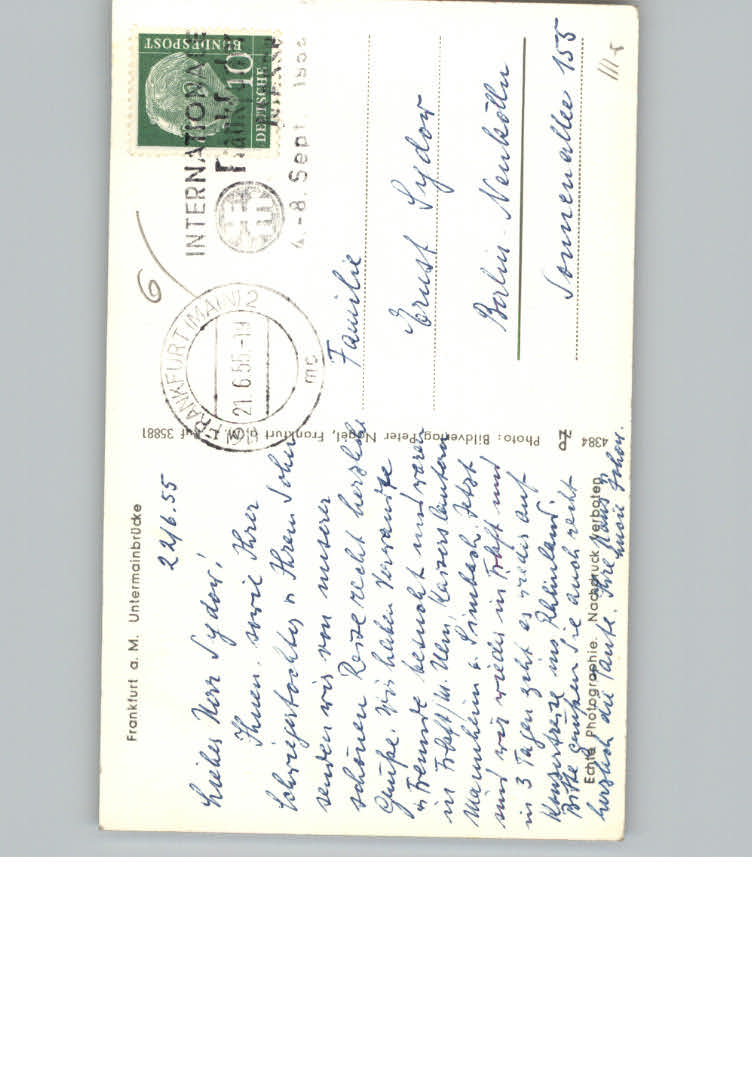 Frankfurt a. M. Untermainbrücke
22/6.55
Lieber Herr Sydow!
Ihnen, sowie Ihrer
Schwiegertochter u Ihrem Sohn
senden wir von unserer
schönen Reise recht herzliche
Grüße. Wir haben Verwandte
u Freunde besucht und waren
in Frkft/M. Ulm, Kaiserslautern
Mannheim u. Simbach. Jetzt
sind wir wieder in Frkft und
in 3 Tagen geht es wieder auf
Konzertreise ins Rheinland.
Bitte grüßen Sie auch recht
herzlich die Tante. Ihre
Echte Photographie. Nachdruck verboten
Photo: Bildverlag Peter Nagel, Frankfurt a. M. 1, Ruf 35881
4384
FRANKFURT (MAIN) 2
21.6.55.-18
mc
INTERNATIONALE
Frankfurter
4.-8. Sept. 1955
DEUTSCHE
BUNDESPOST
10
6
Familie
Ernst Sydow
Berlin-Neukölln
Sonnenallee 155